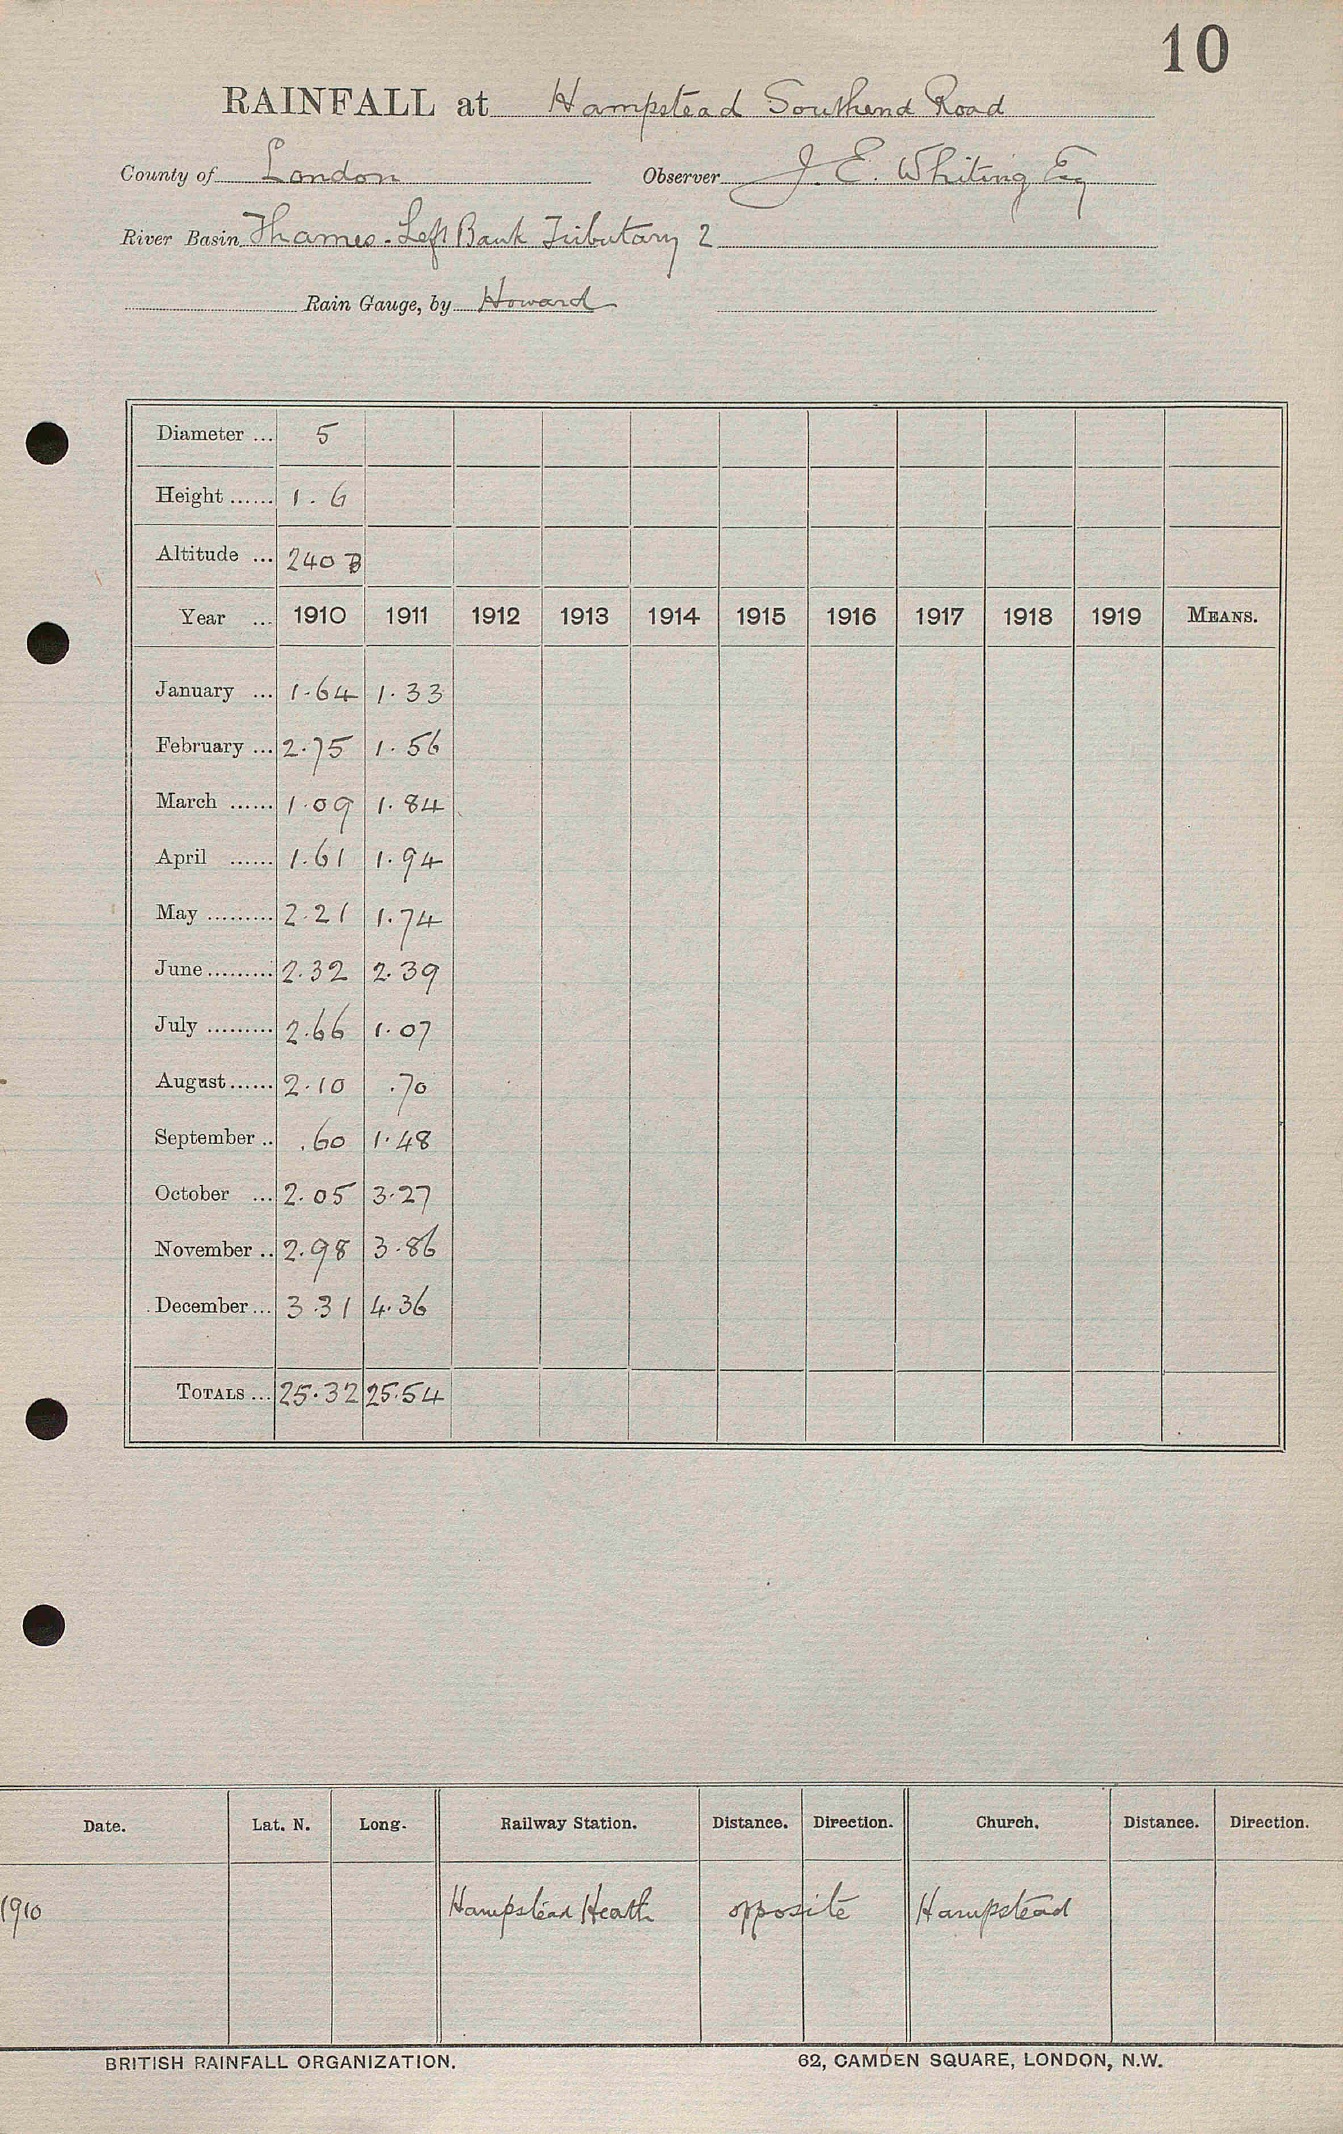 10
RAINFALL at Hampstead Southend Road
County of London Observer J. E. Whiting Esq
River Basin Thames - Left Bank Tributary 2
Rain Gauge, by Howard
Diameter ... 5
Height ...... 1 . 6
Altitude ... 240 B
Year ... 1910 1911 1912 1913 1914 1915 1916 1917 1918 1919 MEANS.
January ... 1.64 1.33
February ... 2.75 1.56
March ...... 1.09 1.84
April ...... 1.61 1.94
May ......... 2.21 1.74
June ......... 2.32 2.39
July ......... 2.66 1.07
August ...... 2.10 .70
September .. .60 1.48
October ... 2.05 3.27
November .. 2.98 3.86
December ... 3.31 4.36
TOTALS ... 25.32 25.54
Date. Lat. N. Long. Railway Station. Distance. Direction. Church. Distance. Direction.
1910 Hampstead Heath opposite Hampstead
BRITISH RAINFALL ORGANIZATION. 62, CAMDEN SQUARE, LONDON, N.W.